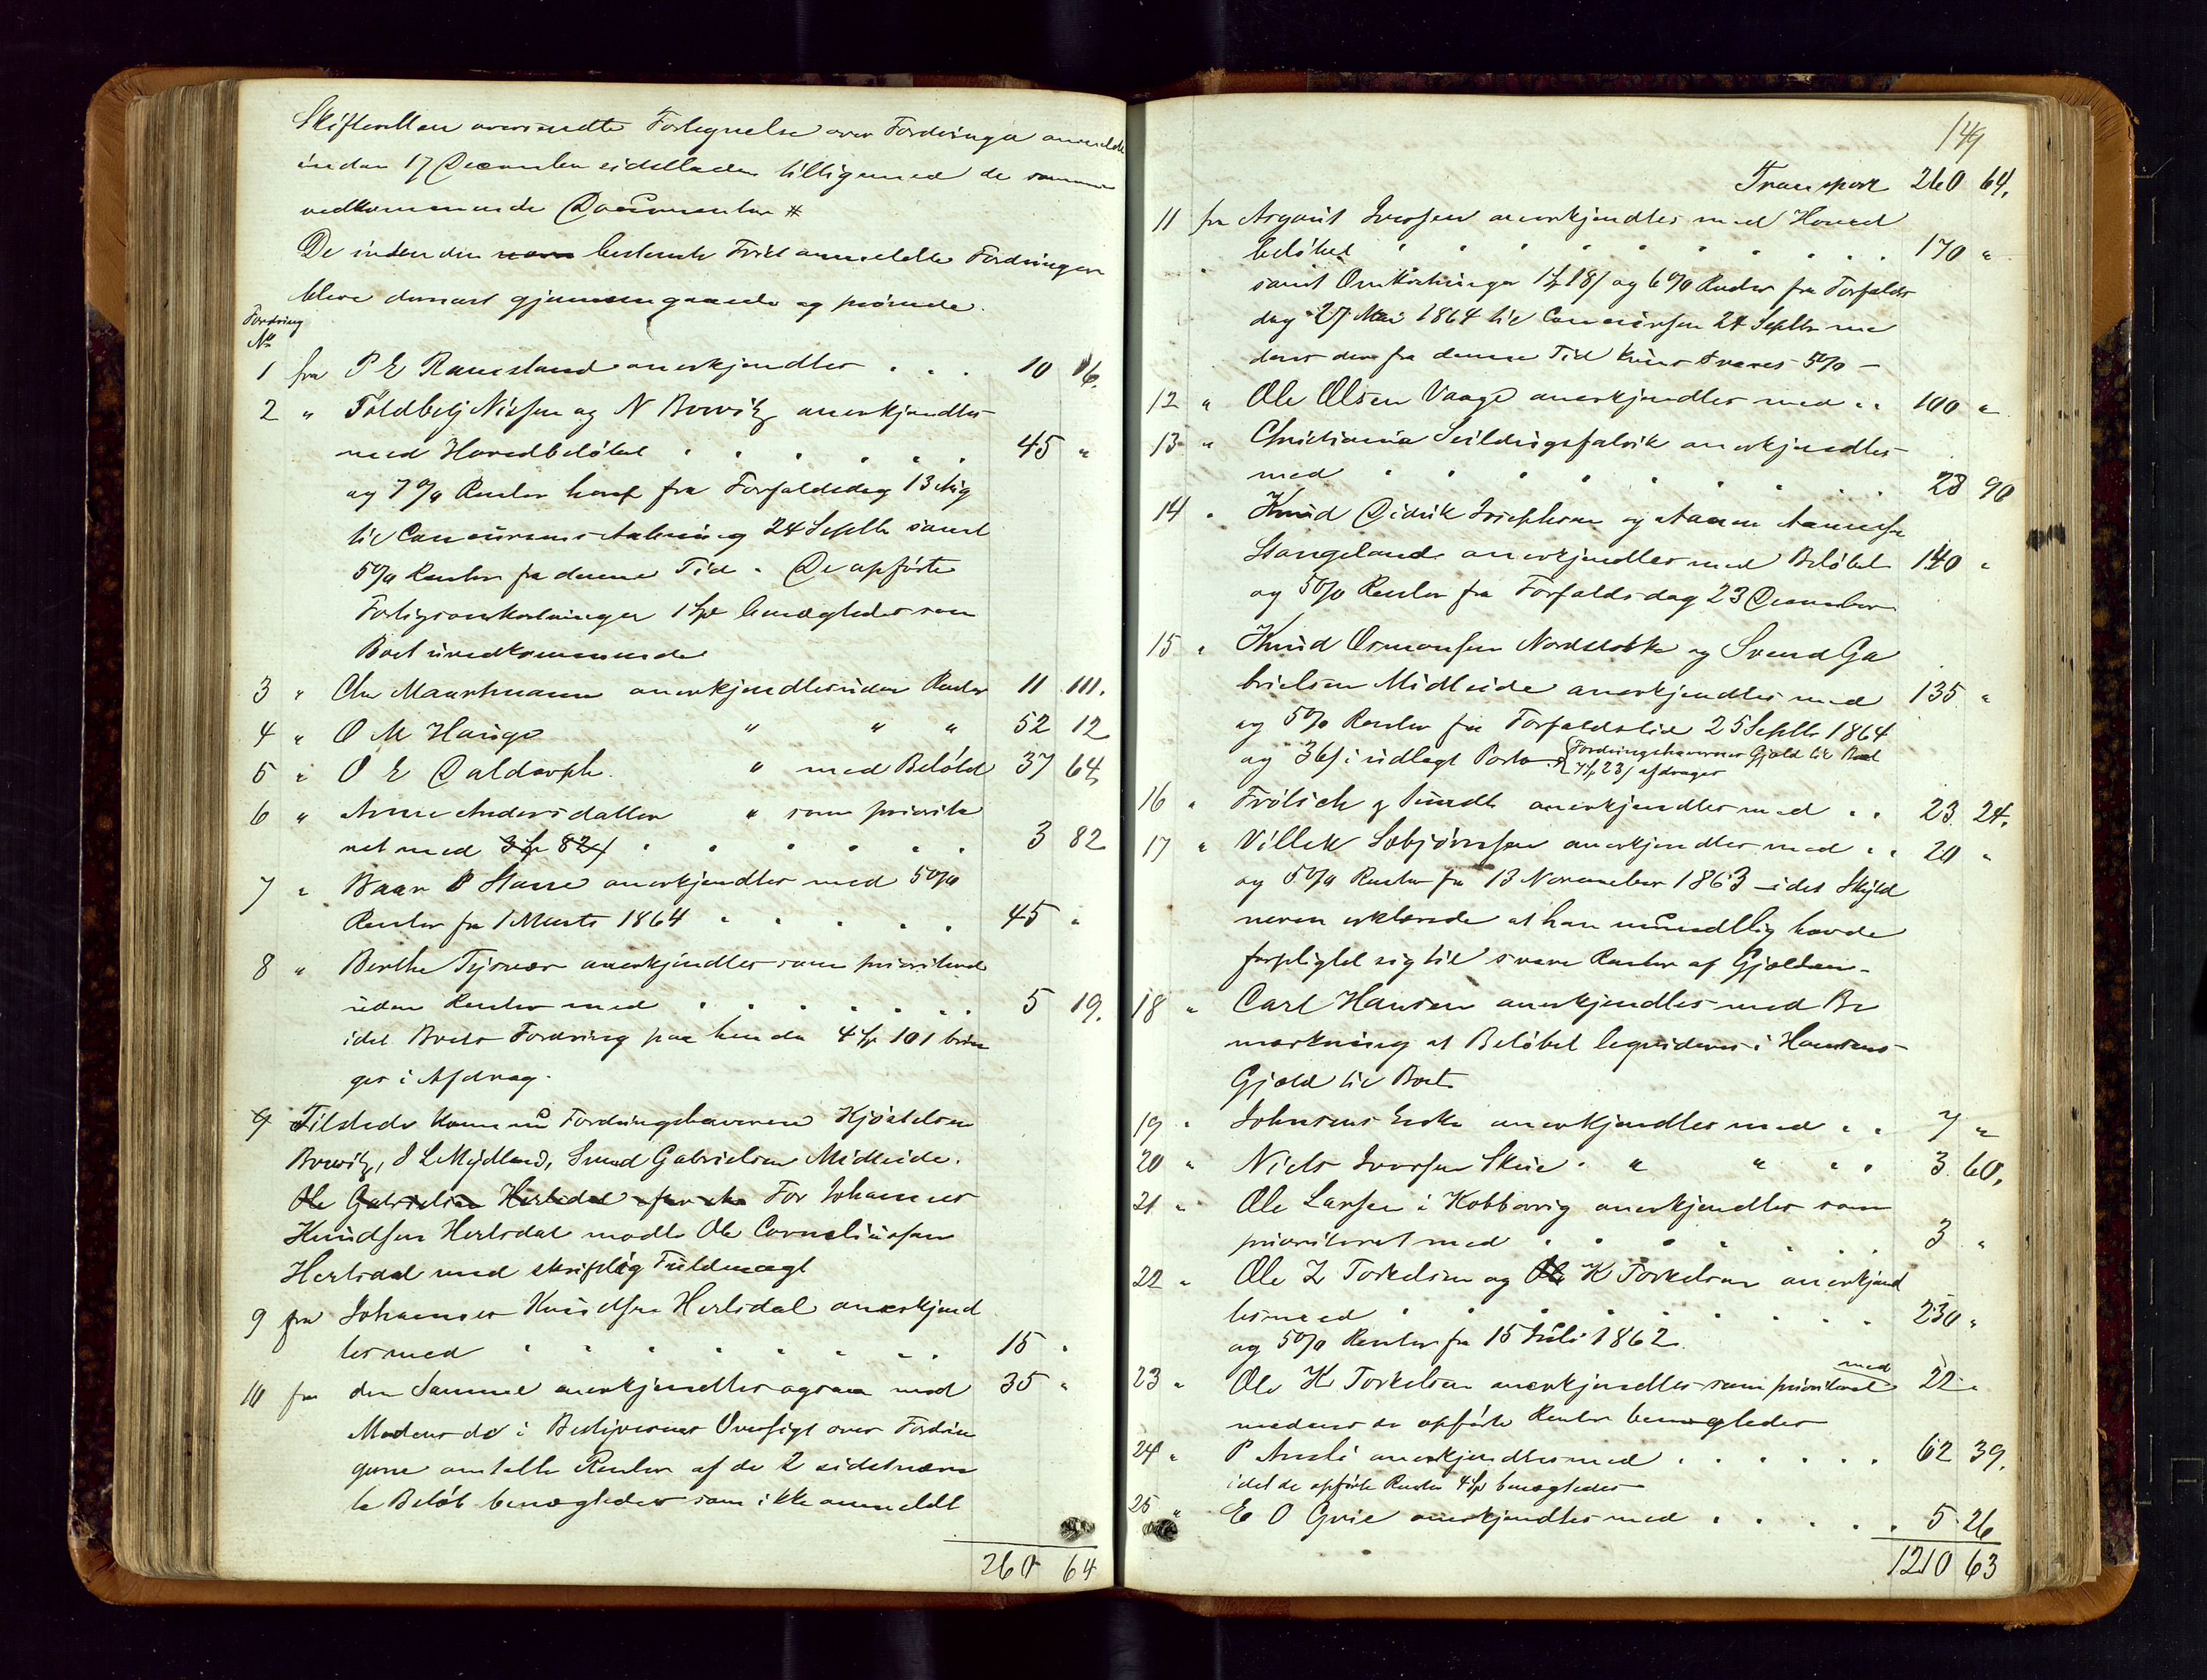 Skifteretten oversendte Fortegnelse over Fordringer anmeldte
inden 17 December sidstleden tilligemed de samme
vedkommende Documenter #
De inden den bestemte Frist anmeldte Fordringer
bleve dernæst gjennemgaaede og prøvede.
Fordring
No
1 fra P E Ramsland anerkjendtes . . . 10 16.
2 " Toldbetj Nissen og N Bowitz anerkjendtes
med Hovedbeløbet . . . . . . 45 "
og 7 % Renter heraf fra Forfaldsdag 13 Aug
til Concursens Aabning 24 Septbr samt
5 % Renter fra denne Tid. De opførte
Forligsomkostninger 1 Spd benægtedes som
Boet uvedkommende
3 " Chr Maartmann anerkjendtes uden Renter 11 111.
4 " O M Hauge " " " 52 12
5 " O E Daldorph. " med Beløbet 37 64
6 " Anne Andersdatter " som priorite
ret med 3 Sp 82 . . . . . . 3 82
7 " Baar P Stavne anerkjendtes med 5 %
Renter fra 1 Marts 1864 . . . . . 45 "
8 " Berthe Tysvær anerkjendtes som prioriteret
uden Renter med . . . . . . 5 19.
idet Boets Fordring paa hende 4 Sp 101 brin
ges i Afdrag.
Tilstede kom nu Fordringshaverne Kjøstelsen
Bowitz, J L Mydland, Svend Gabrielsen Midteide.
Ole Gabrielsen Herlsdal for ska For Johannes
Knudsen Herlsdal mødte Ole Corneliussen
Herlsdal med skriftlig Fuldmagt
9 fra Johannes Knudsen Herlsdal anerkjend
tes med . . . . . . . . 15 "
10 fra den Samme anerkjendtes ogsaa med 35 "
Medens de i Bestyrernes Oversigt over Fordrin
gerne anstallte Renter af de 2 sidstnævn
te Beløb benægtedes som ikke anmeldt
260 64
149
Transport 260 64.
11 fra Asgaut Iversen anerkjendtes med Hoved
beløbet . . . . . . . . . 170 "
samt Omkostninger 1 Sp 18 s og 6 % Renter fra Forfalds
dag 27 Mai 1864 til Concursen 24 Septbr me
dens der fra denne Tid kuns svares 5 % –
12 " Ole Olsen Vaage anerkjendtes med . . 100 "
13 " Christiania Seildugsfabrik anerkjendtes
med . . . . . . . . 28 90
14 " Knud Didrik Josephsen og Aanen Aanensen
Stangeland anerkjendtes med Beløbet 140 "
og 5 % Renter fra Forfaldsdag 23 December
15 " Knud Osmonsen Nordstokke og Svend Ga
brielsen Midteide anerkjendtes med 135 "
og 5 % Renter fra Forfaldstid 25 Septbr 1864
og 36 s i udlagt Porto. Fordringshavernes Gjæld til Boet
7 Sp 23 s afdrages
16 " Frölich & Sundt anerkjendtes med . . 23 24.
17 " Villek Sebjørnsen anerkjendtes med . . 20 "
og 5 % Renter fra 13 November 1863 – idet Skyld
neren erklærede at han mundtlig havde
forpligtet sig til svare Renter af Gjælden –
18 " Carl Hansen anerkjendtes med Be
mærkning at Beløbet liqvideres i Hansens
Gjæld til Boet
19 " Johnsens Enke anerkjendtes med . . 7 "
20 " Niels Iversen Skeie. " " . . 3 60.
21 " Ole Larsen i Kobbervig anerkjendtes som
prioriteret med . . . . . . . 3 "
22 " Ole Z Torkelsen og K Torkelsen anerkjend
tes med . . . . . . . . 230 "
og 5 % Renter fra 15 Juli 1862.
23 " Ole K Torkelsen anerkjendtes som prioriteret med 22 "
medens de opførte Renter benægtedes
24 " P Amli anerkjendtes med . . . . . . 62 39.
idet de opførte Renter 4 Sp benægtedes
25 " E O Qvie anerkjendtes med . . . . . 5 26
1210 63